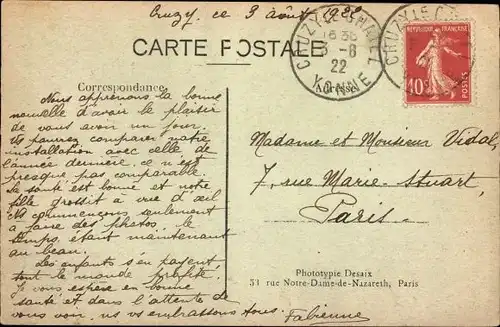 Cruzy, ce 3 août 1922
CARTE POSTALE
CRUZY-LE-CHATEL
16 30
3 - 8
22
YONNE
CRUZY LE C
REPUBLIQUE FRANÇAISE
40c
POSTES
Correspondance
Adresse
Nous apprenons la bonne
nouvelle d'avoir le plaisir
de vous avoir un jour.
Vs pourrez comparer notre
installation avec celle de
l'année dernière, ce n'est
presque pas comparable.
La santé est bonne et notre
fille grossit à vue d'œil
Ns commençons seulement
à faire des photos, le
temps étant maintenant
au beau.
Les enfants s'en
tout le monde profite.
Je vous espère en bonne
santé et dans l'attente de
vous voir, ns vs embrassons tous.
Fabienne
Madame et Monsieur Vidal,
7, rue Marie-Stuart,
Paris
Phototypie Desaix
53 rue Notre-Dame-de-Nazareth, Paris